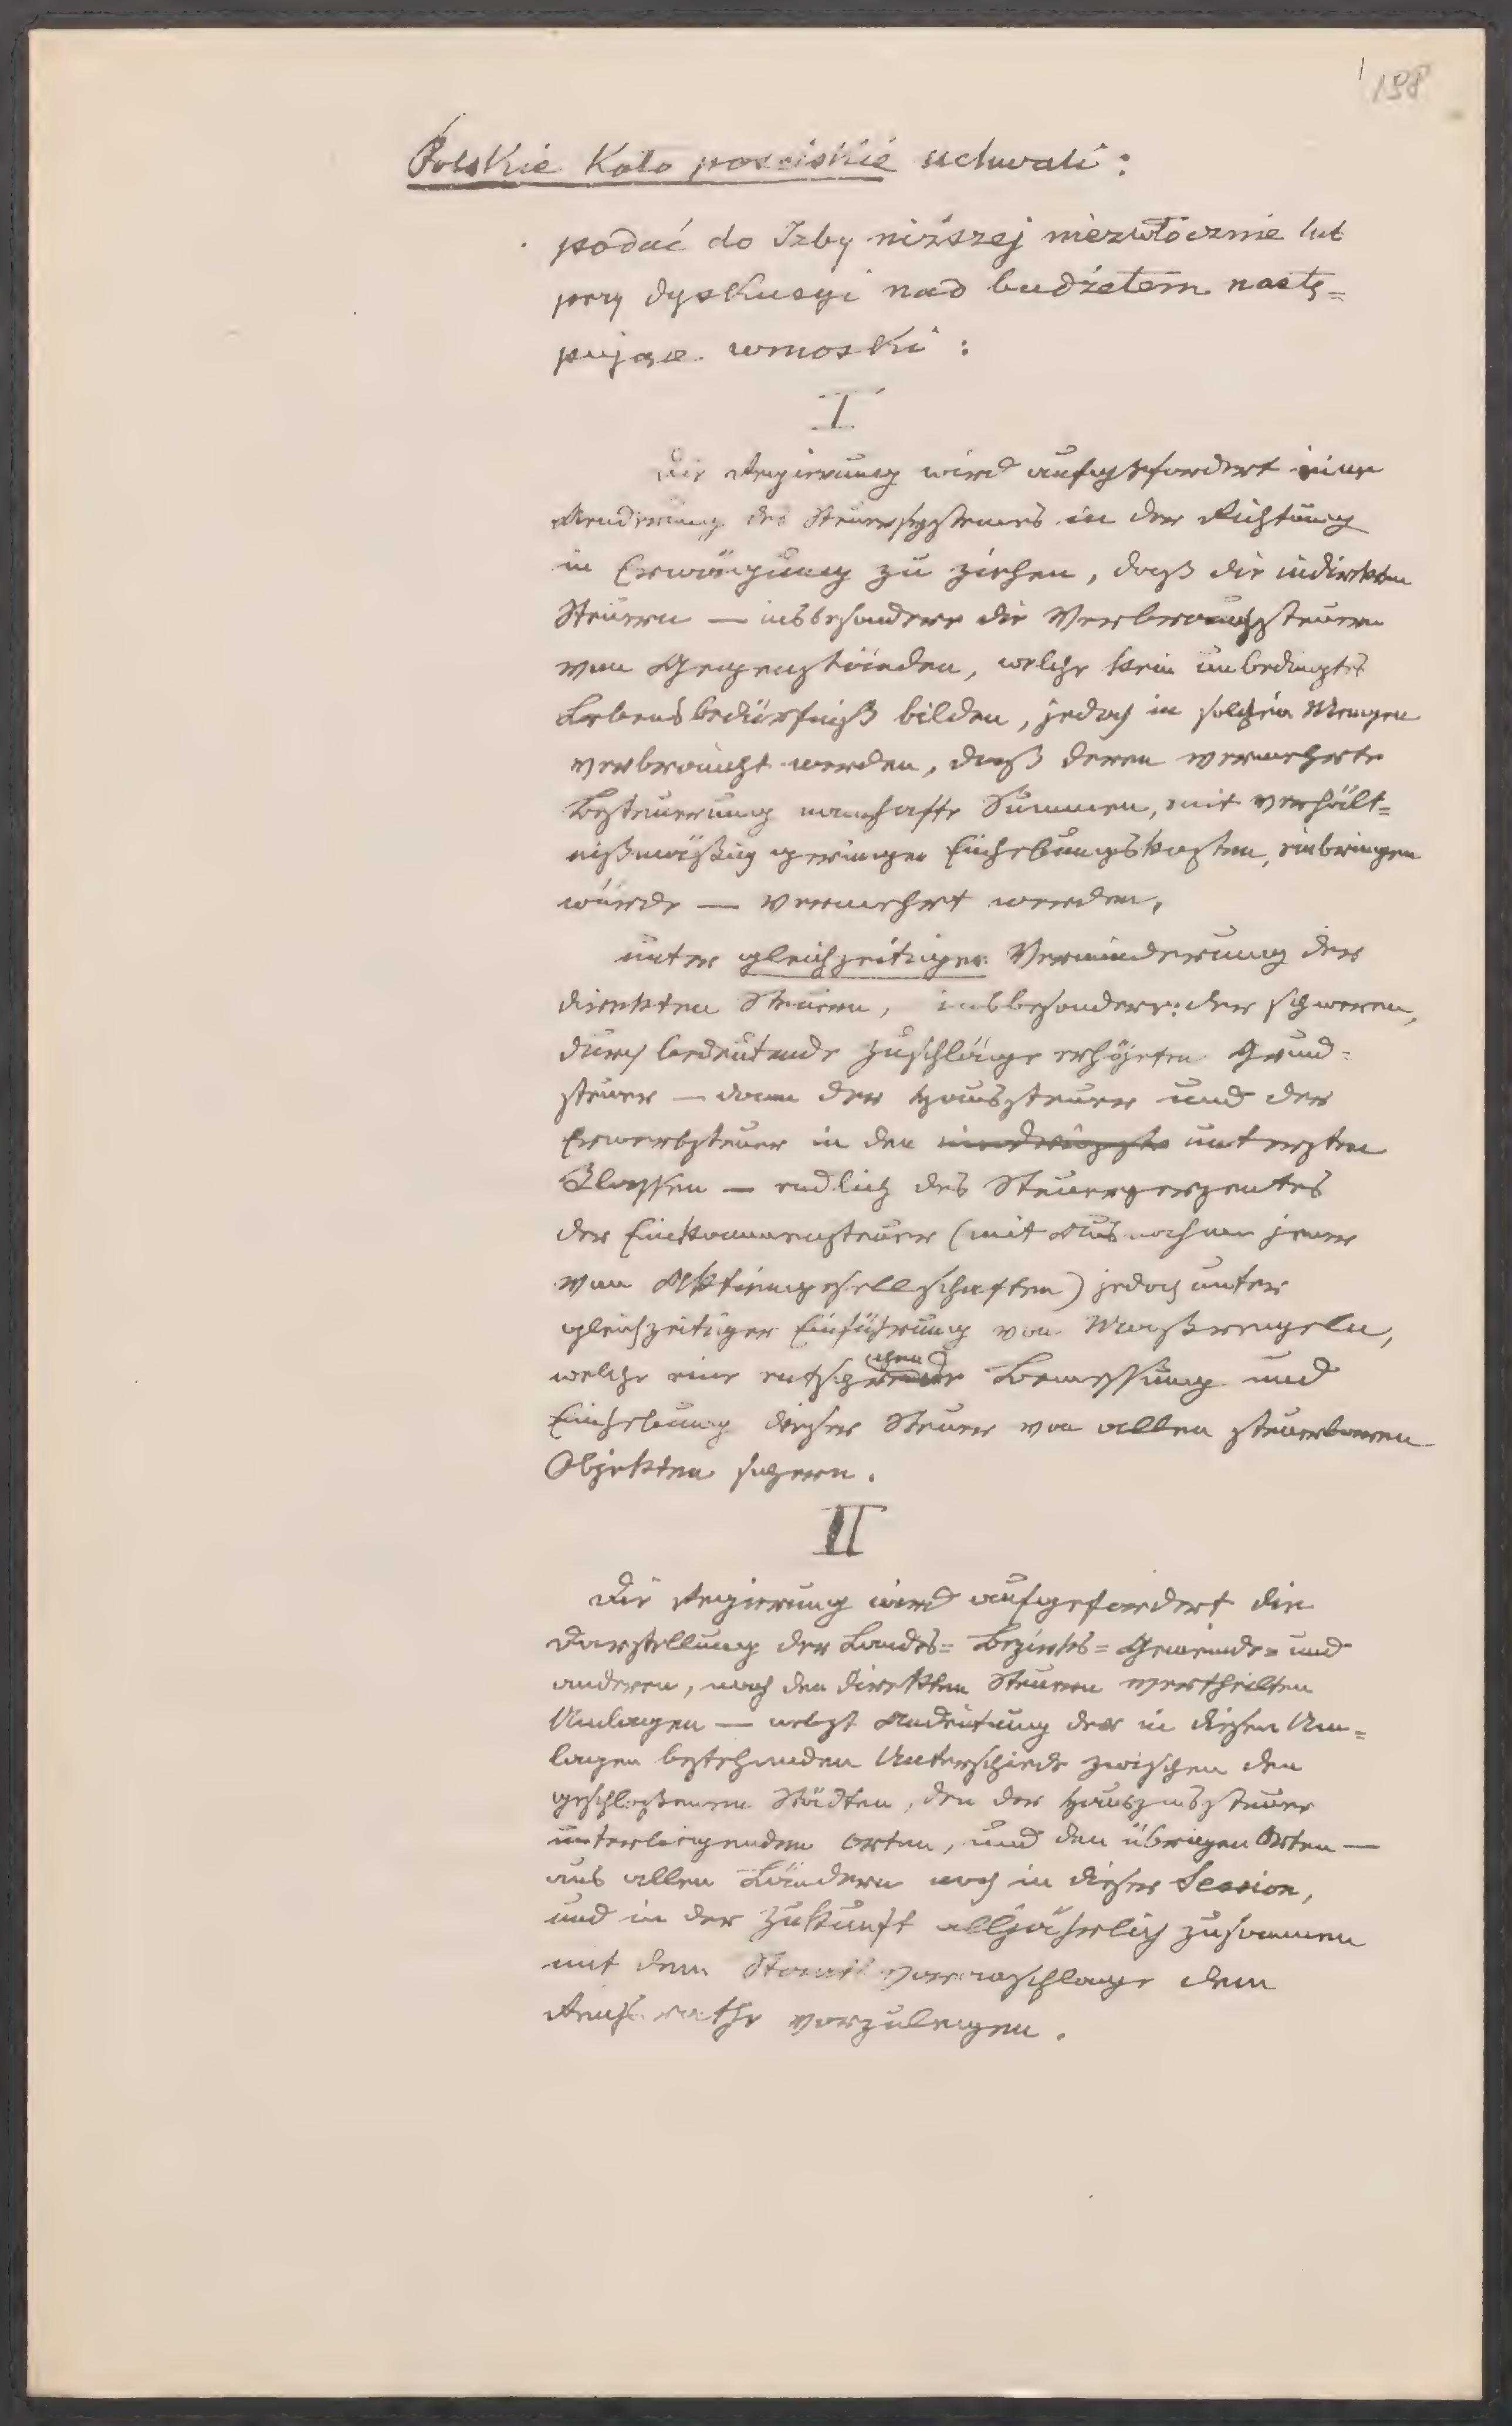 198
Polskie Koło poselskie uchwali:
podać do Izby niższej niezwłocznie lub
przy dyskusyi nad budżetem nastę=
pujące wnioski:
I
Die Regierung wird aufgefordert eine
Aenderung des Steuersystemes in der Richtung
in Erwägung zu ziehen, daß die indirekten
Steuern — insbesondere die Verbrauchssteuern
von Gegenständen, welche kein unbedingtes
Lebensbedürfniß bilden, jedoch in solchen Mengen
verbraucht werden, daß deren vermehrte
Besteuerung namhafte Summen, mit verhält=
nißmäßig geringen Einhebungskosten, einbringen
würde — vermehrt werden,
unter gleichzeitiger Verminderung der
direkten Steuern, insbesondere: der schweren,
durch bedeutende Zuschläge erhöhten Grund=
steuer — dann der Haussteuer und der
Erwerbsteuer in den untersten
Classen — endlich des Steuerperzentes
der Einkommensteuer (mit Ausnahme jener
von Aktiengesellschaften) jedoch unter
gleichzeitiger Einführung von Maßregeln,
welche eine entsprechende Bemessung und
Einhebung dieser Steuer von allen steuerbaren
Objekten sichern.
II
Die Regierung wird aufgefordert die
Darstellung der Landes= Bezirks= Gemeinde= und
anderen, nach den direkten Steuern vertheilten
Umlagen — nebst Andeutung der in diesen Um=
lagen bestehenden Unterschiede zwischen den
geschloßenen Städten, den der Hauszinssteuer
unterliegenden Orten, und den übrigen Orten —
aus allen Ländern noch in dieser Session,
und in der Zukunft alljährlich zusammen
mit dem Staatsvoranschlage dem
Reichsrathe vorzulegen.